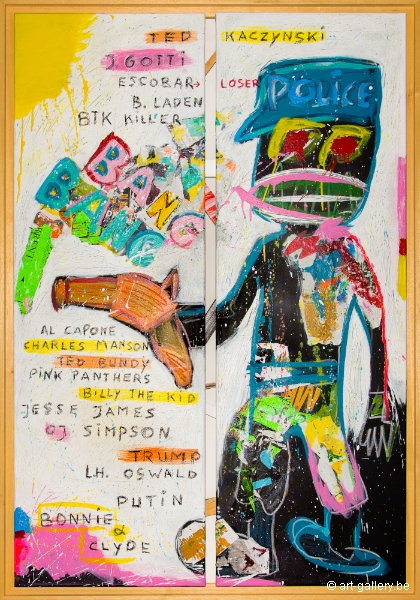 TED KACZYNSKI
J. GOTTI
ESCOBAR → LOSER
B. LADEN
BTK KILLER
POLICE
BANG
BANG
AL CAPONE
CHARLES MANSON
TED BUNDY
PINK PANTHERS
BILLY THE KID
JESSE JAMES
OJ SIMPSON
TRUMP
LH. OSWALD
PUTIN
BONNIE
&
CLYDE
© art-gallery.be